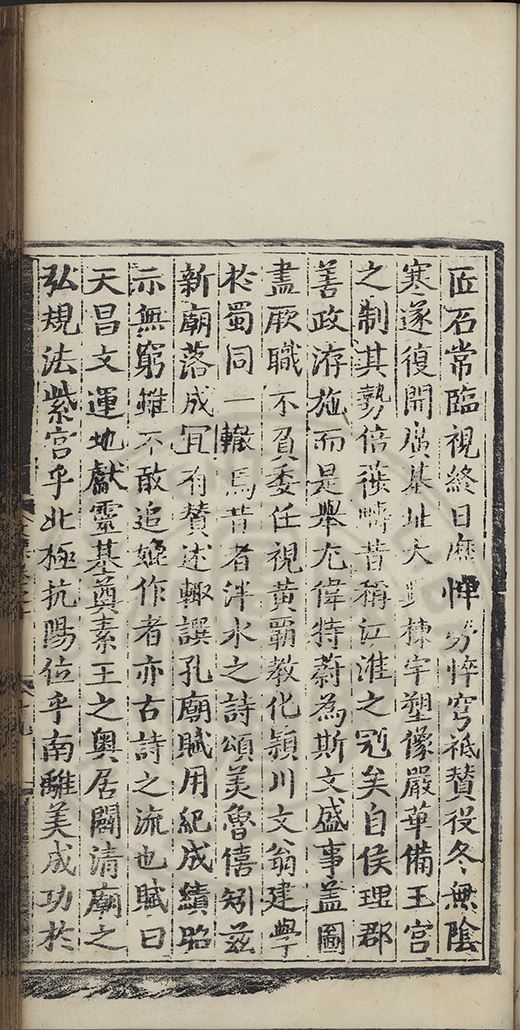 匠石常臨視終日靡憚勞悴穹祗贊役冬無陰
寒遂復開廣基址大 棟宇塑像嚴華備王宮
之制其勢倍蓰疇昔稱江淮之冠矣自侯理郡
善政游施而是舉尤偉特蔚為斯文盛事蓋圖
盡厥職不負委任視黃霸教化潁川文翁建學
於蜀同一轍焉昔者泮水之詩頌美魯僖矧茲
新廟落成冝有贊述輙譔孔廟賦用紀成績昭
示無窮雖不敢追媲作者亦古詩之流也賦曰
天昌文運地獻靈基奠素王之奧居闢清廟之
弘規法紫宮乎北極抗陽位乎南離美成功於